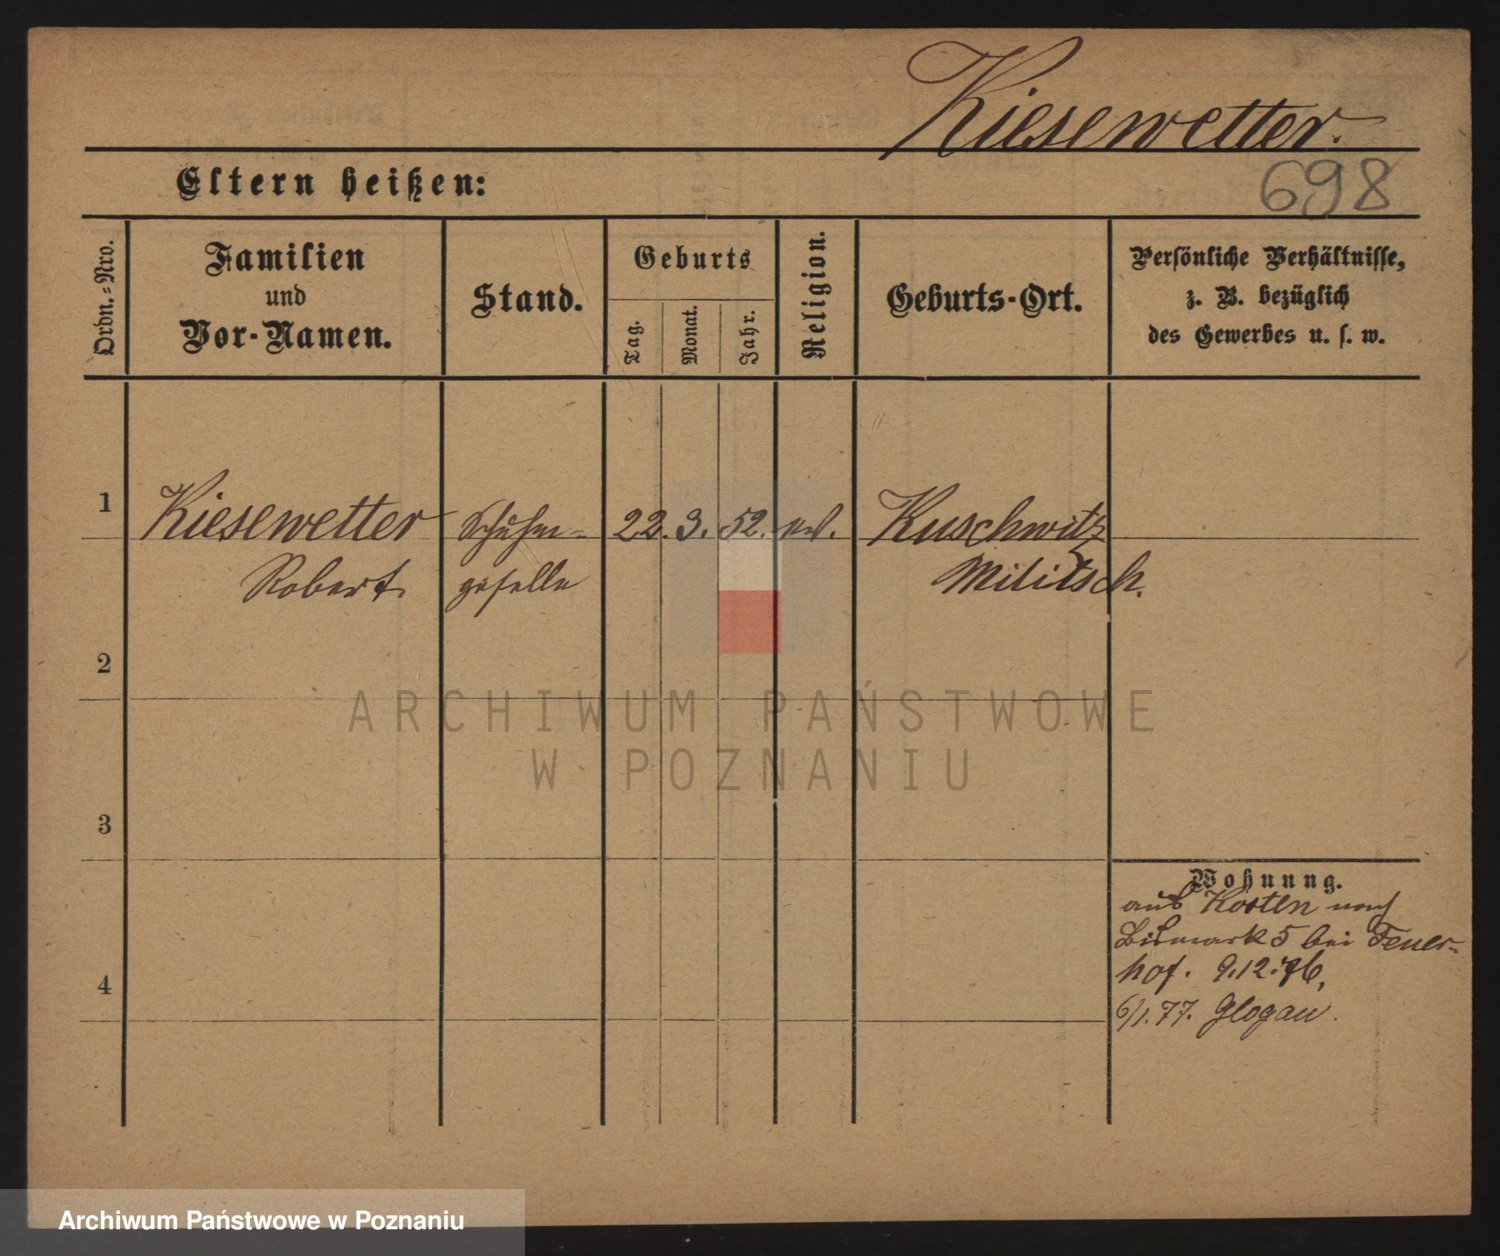 Kiesewetter.
698
Eltern heißen:
Ordn.-Nro.
Familien
und
Vor-Namen.
Stand.
Geburts
Tag.
Monat.
Jahr.
Religion.
Geburts-Ort.
Persönliche Verhältnisse,
z. B. bezüglich
des Gewerbes u. s. w.
1
Kiesewetter Schuhm- 22. 3. 52. ev. Kuschwitz
Robert geselle Militsch.
2
ARCHIWUM PAŃSTWOWE
W POZNANIU
3
Wohnung.
aus Kosten nach
Bismark 5 bei Feuer-
hof. 9.12.76,
4
6/1.77. Glogau.
Archiwum Państwowe w Poznaniu